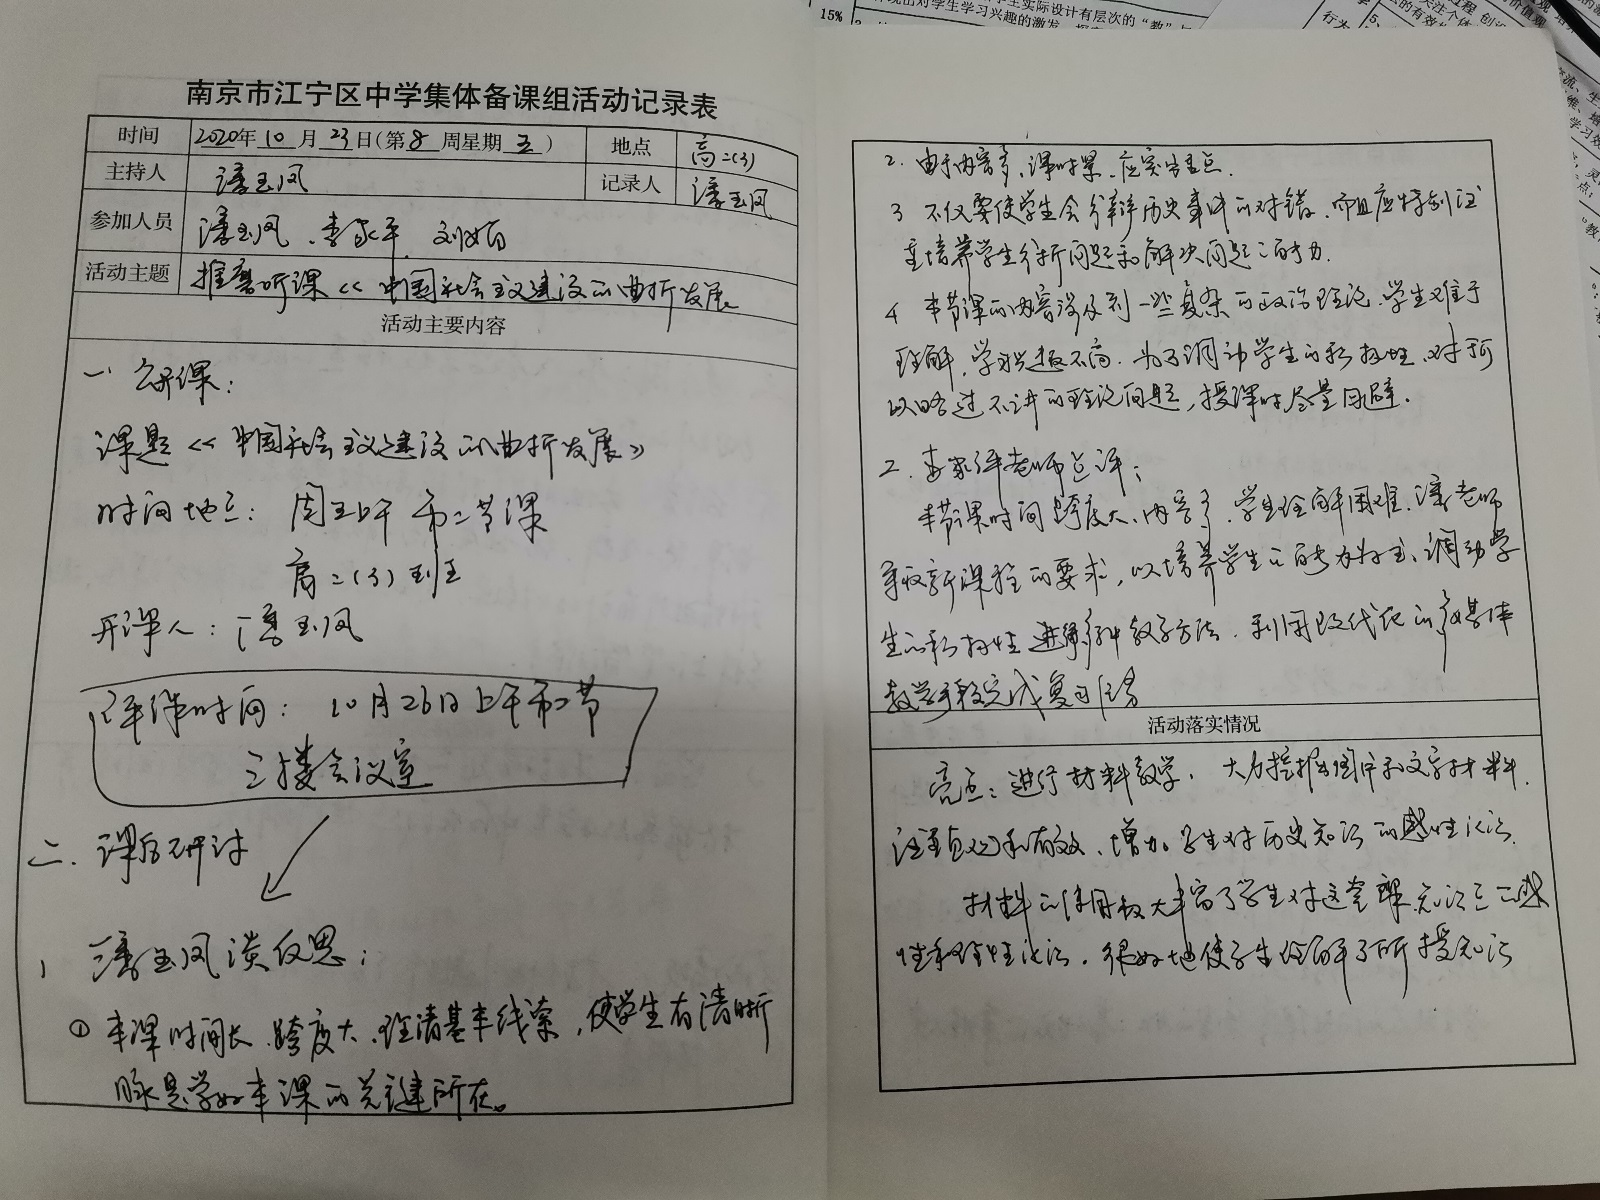 南京市江宁区中学集体备课组活动记录表
时间 2020年10月23日(第8周星期五) 地点 高二(3)
主持人 潘玉凤 记录人 潘玉凤
参加人员 潘玉凤、李家平
活动主题 推磨听课《中国社会主义建设的曲折发展
活动主要内容
一 公开课:
课题《中国社会主义建设的曲折发展》
时间地点: 周五上午 第二节课
高二(3)班
开课人:潘玉凤
评课时间: 10月26日上午第二节
三楼会议室
二. 课后研讨
1 潘玉凤谈反思:
① 本课时间长、跨度大、理清基本线索,使学生有清晰
脉是学好本课的关键所在。
2. 由于内容多,课时紧,应突出重点.
3 不仅要使学生会分辨历史事件的对错,而且应特别注
重培养学生分析问题和解决问题的能力.
4 本节课的内容涉及到一些复杂的政治理论,学生难于
理解,学习兴趣不高.为了调动学生的积极性,对于可
以略过不讲的理论问题,授课时尽量回避.
2. 李家平老师点评:
本节课时间跨度大、内容多,学生理解困难,潘老师
新课程的要求,以培养学生的能力为主,调动学
生的积极性 进行多种教学方法.利用现代化的多媒体
教学手段完成复习任务
活动落实情况
亮点:进行材料教学,大力挖掘图片和文字材料.
注重直观和有效,增加学生对历史知识的感性认识.
材料的使用极大丰富了学生对这堂课知识点的感
性和理性认识,很好地使学生理解了所授知识
15%